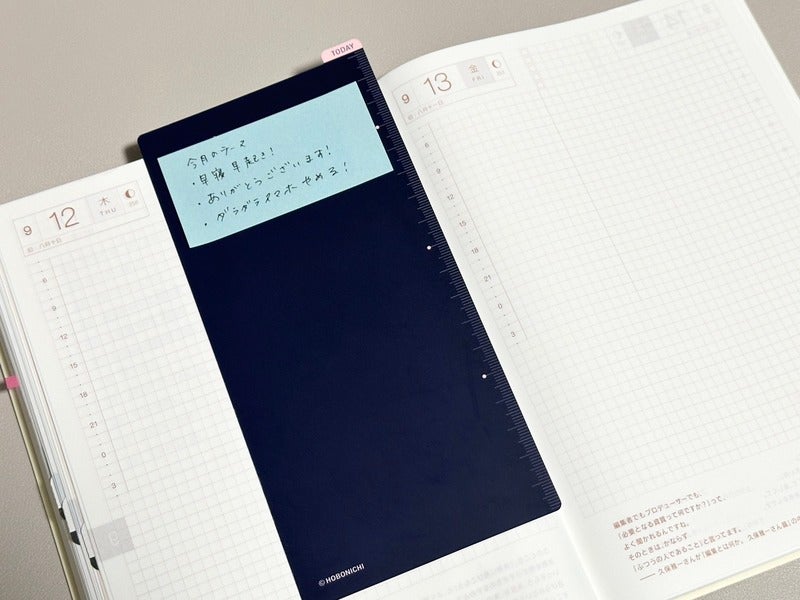 TODAY
今月のテーマ
・早寝早起き!
・ありがとうございます!
・ダラダラスマホやめる!
© HOBONICHI
9 12 木 THU
旧・八月十日
6
9
12
15
18
21
0
3
9
9 13 金 FRI
旧・八月十一日
6
9
12
15
18
21
0
3
編集者でもプロデューサーでも、
「必要となる資質って何ですか?」って、
よく聞かれるんですね。
そのときは、かならず
「ふつうの人であること」と言ってます。